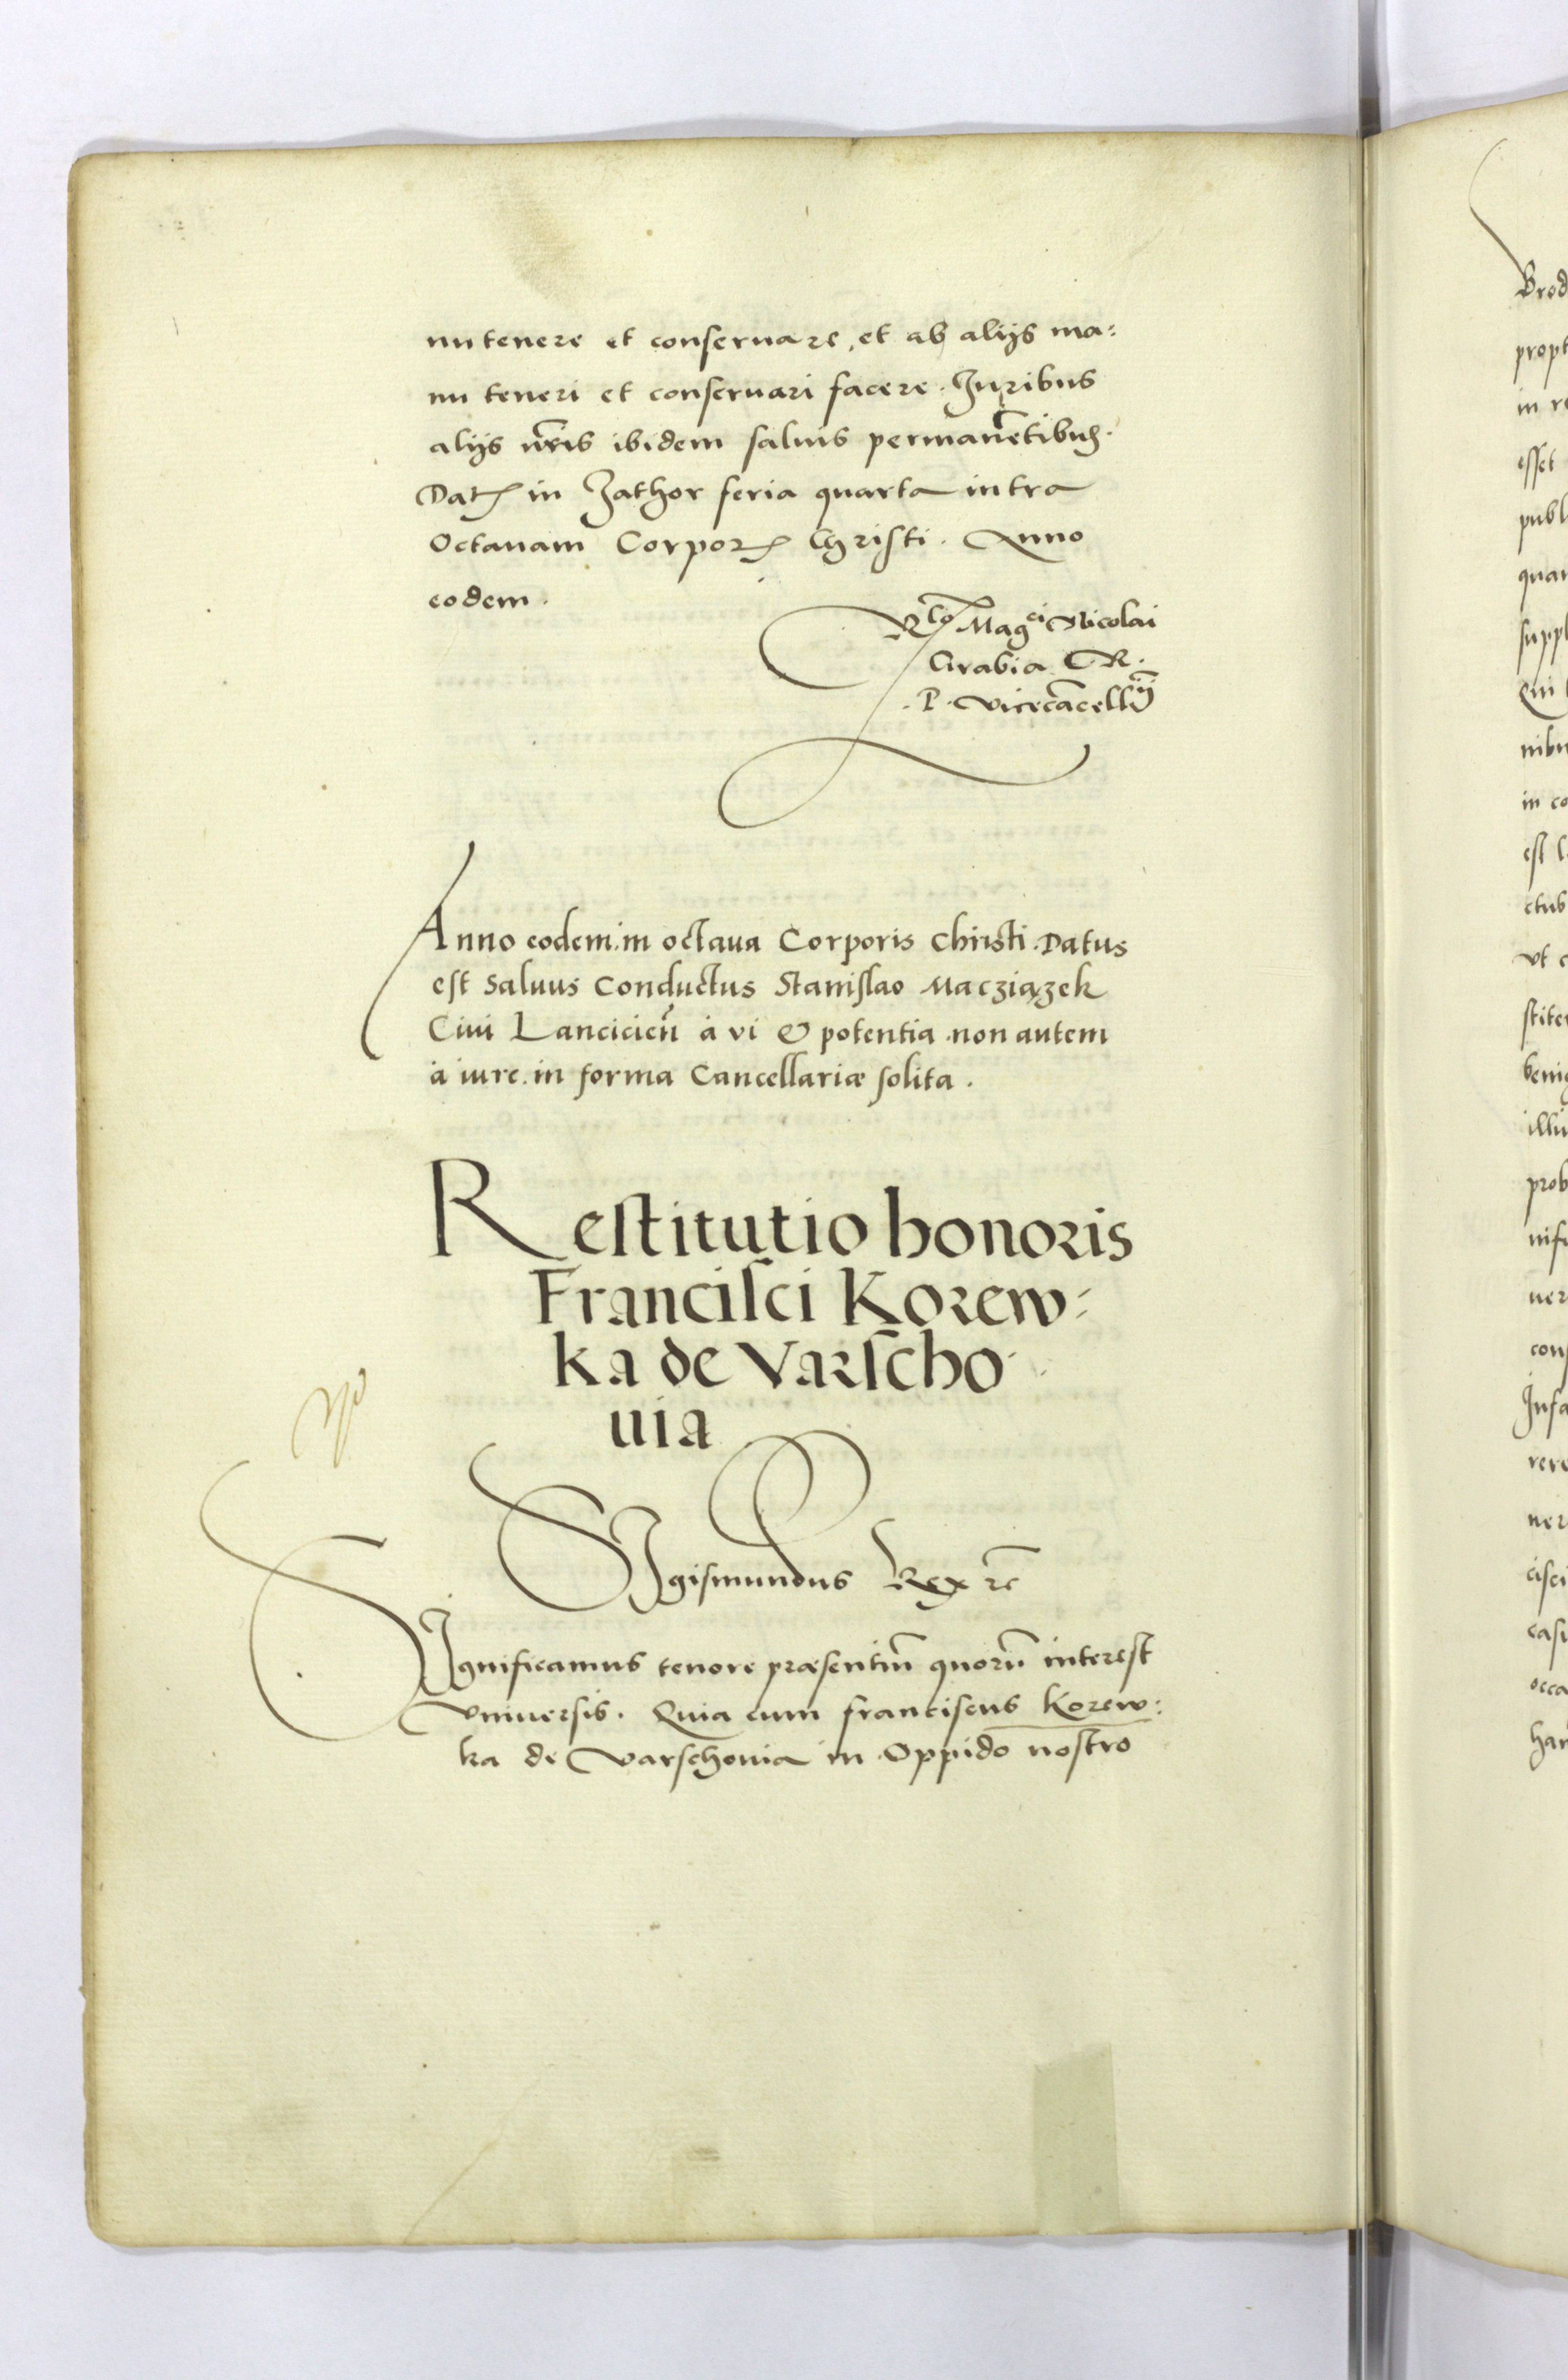 nu tenere et conseruare, et ab alijs ma:
nu teneri et conseruari facere. Iuribus
alijs nr̄is ibidem saluis permanētibus.
Dat̄ in Zathor feria quarta intra
Octauam Corporꝭ Christi. Anno
eodem.
Rlo Magci Nicolai
Grabia R.
.P. Vicecācellīj
Anno eodem. in octaua Corporis Christi. Datus
est Saluus Conductus Stanislao Macziązek
Ciui Lancicień à vi & potentia. non autem
à iure. in forma Cancellariæ solita.
Restitutio honoris
Francisci Korew:
ka de Varscho
uia
SIgismundus Rex ꝛc̄
SIgnificamus tenore præsentiū quorū interest
Vniuersis. Quia cum franciscus Korew:
ka de Varschouia in Oppido nostro
Brod
propt
in re
esset
publ
quan
suppl
Qui
nibu
in co
est l
ctub
vt c
stite
beni
illu
prob
nisi
uer
con
Infa
rere
ner
cisci
casi
occa
han